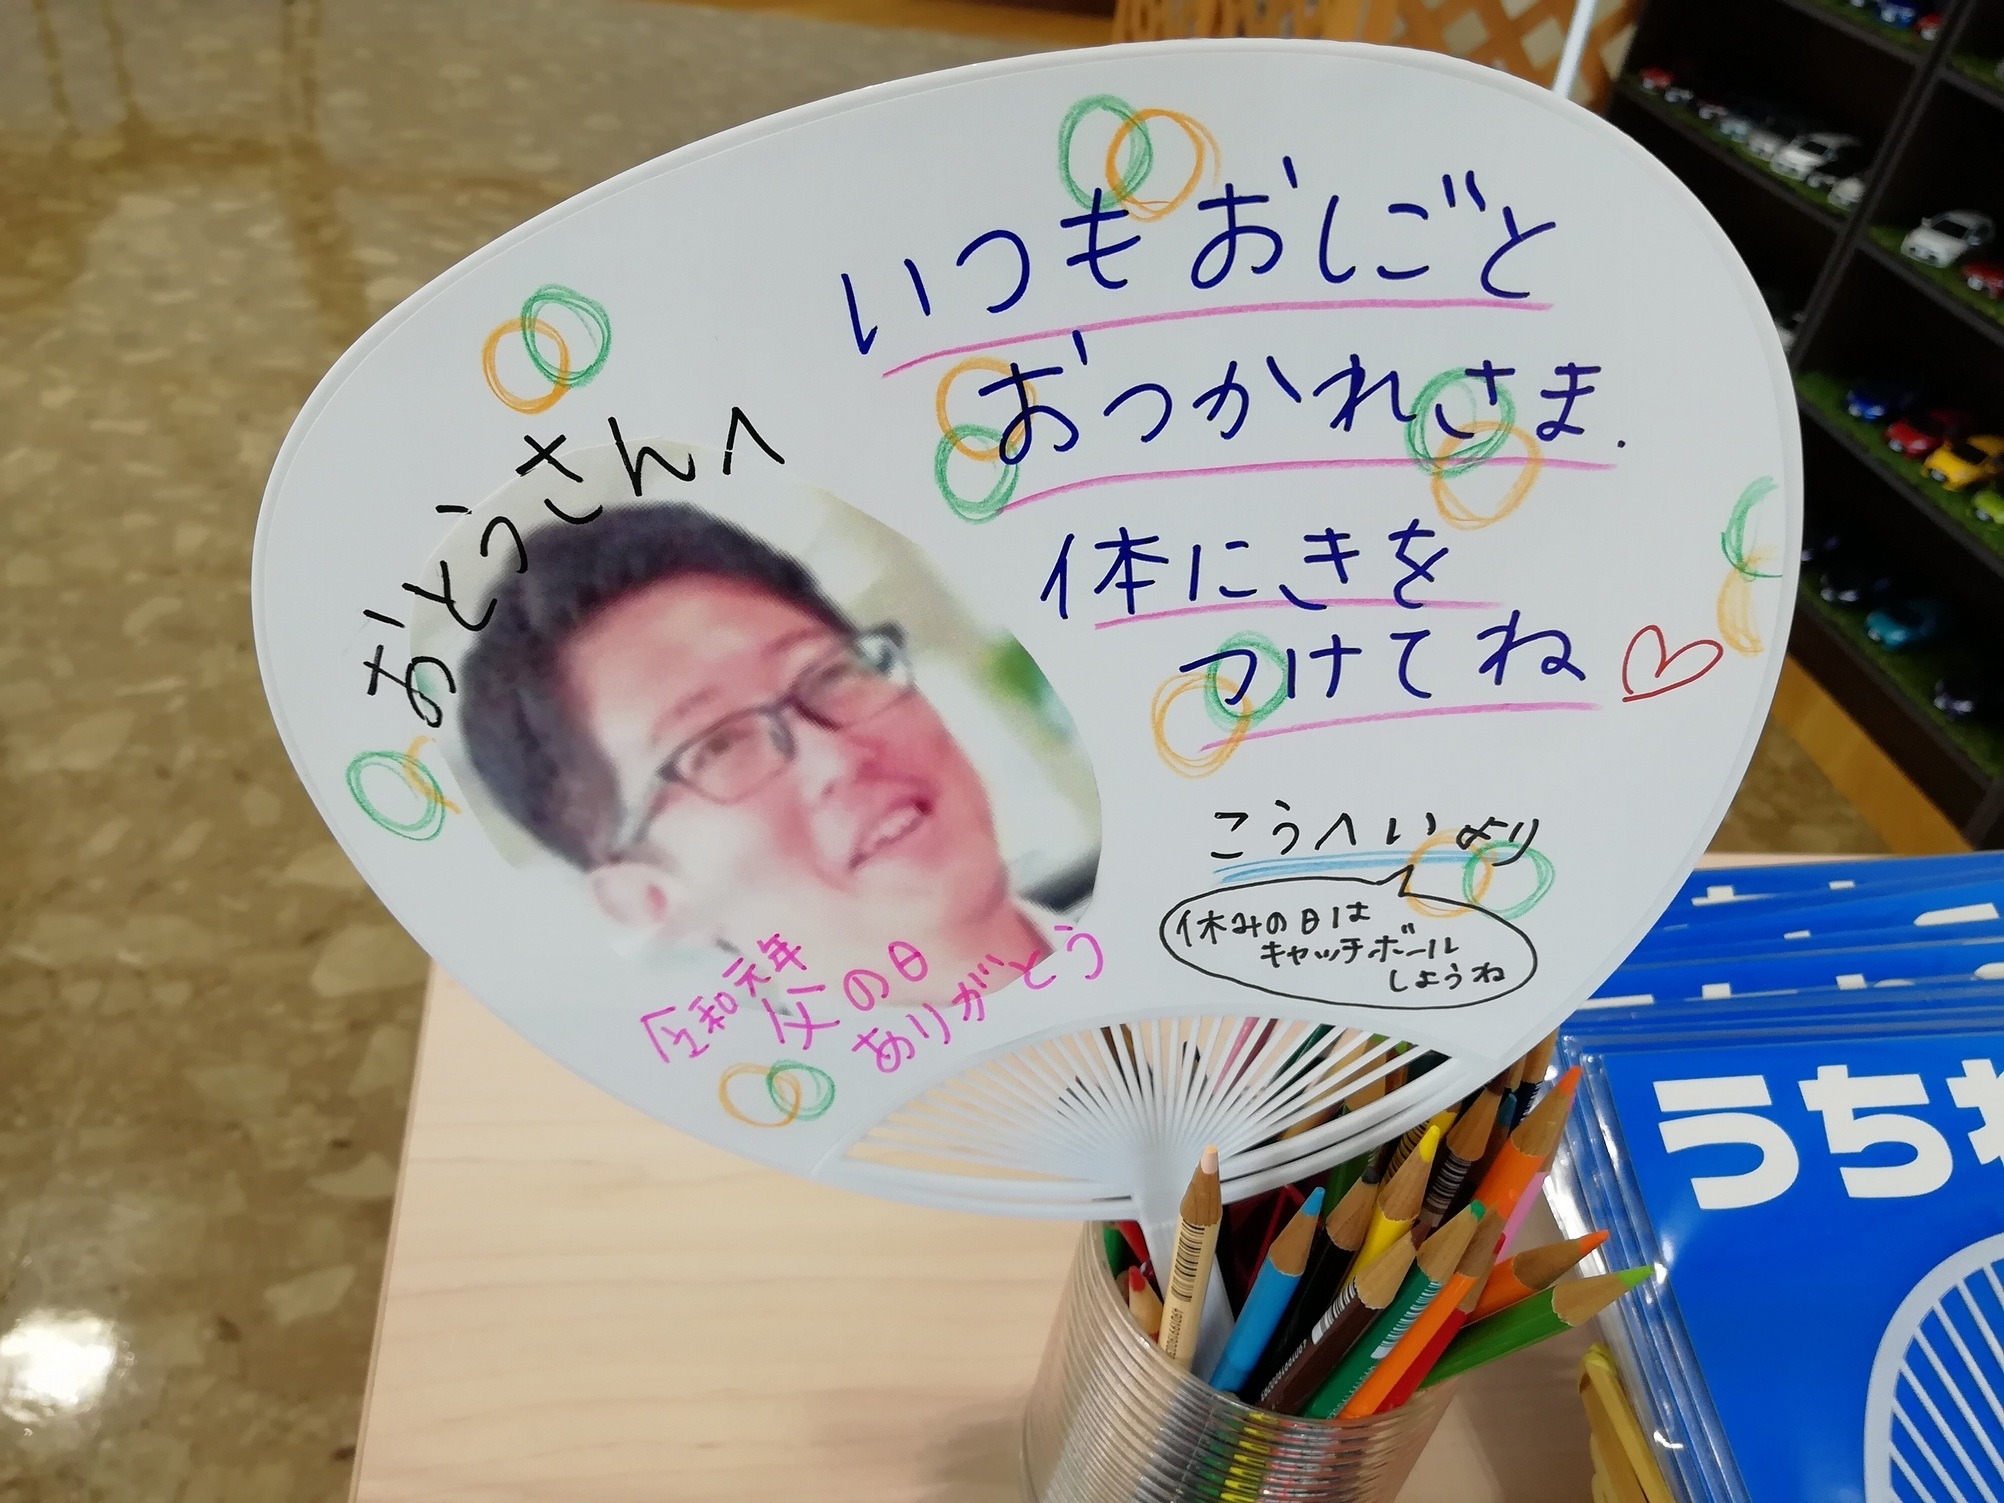 おとうさんへ
いつもおしごと
おつかれさま.
体にきを
つけてね
こうへいより
休みの日は
キャッチボール
しようね
令和元年
父の日
ありがとう
うちわ